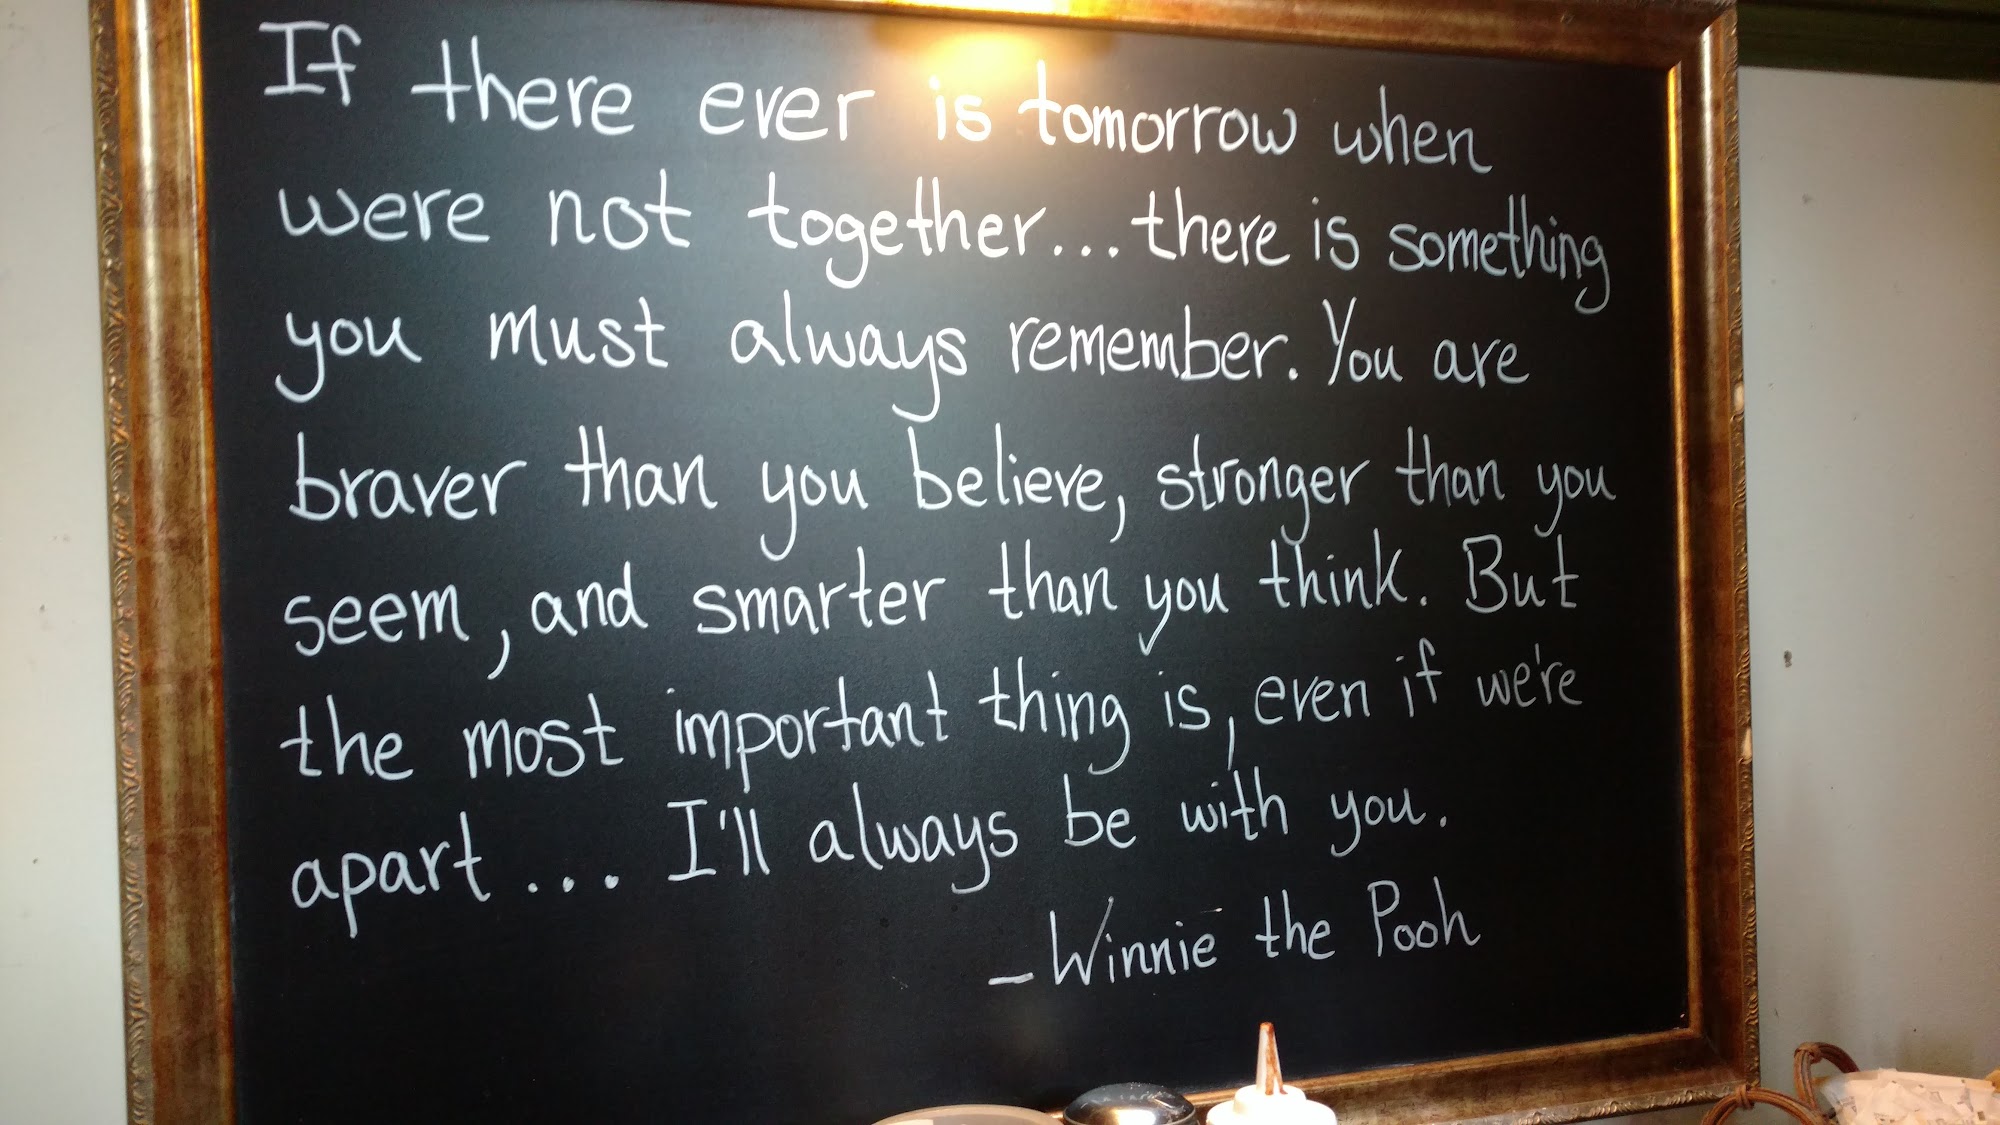 If there ever is tomorrow when
were not together... there is something
you must always remember. You are
braver than you believe, stronger than you
seem, and smarter than you think. But
the most important thing is, even if we're
apart... I'll always be with you.
- Winnie the Pooh